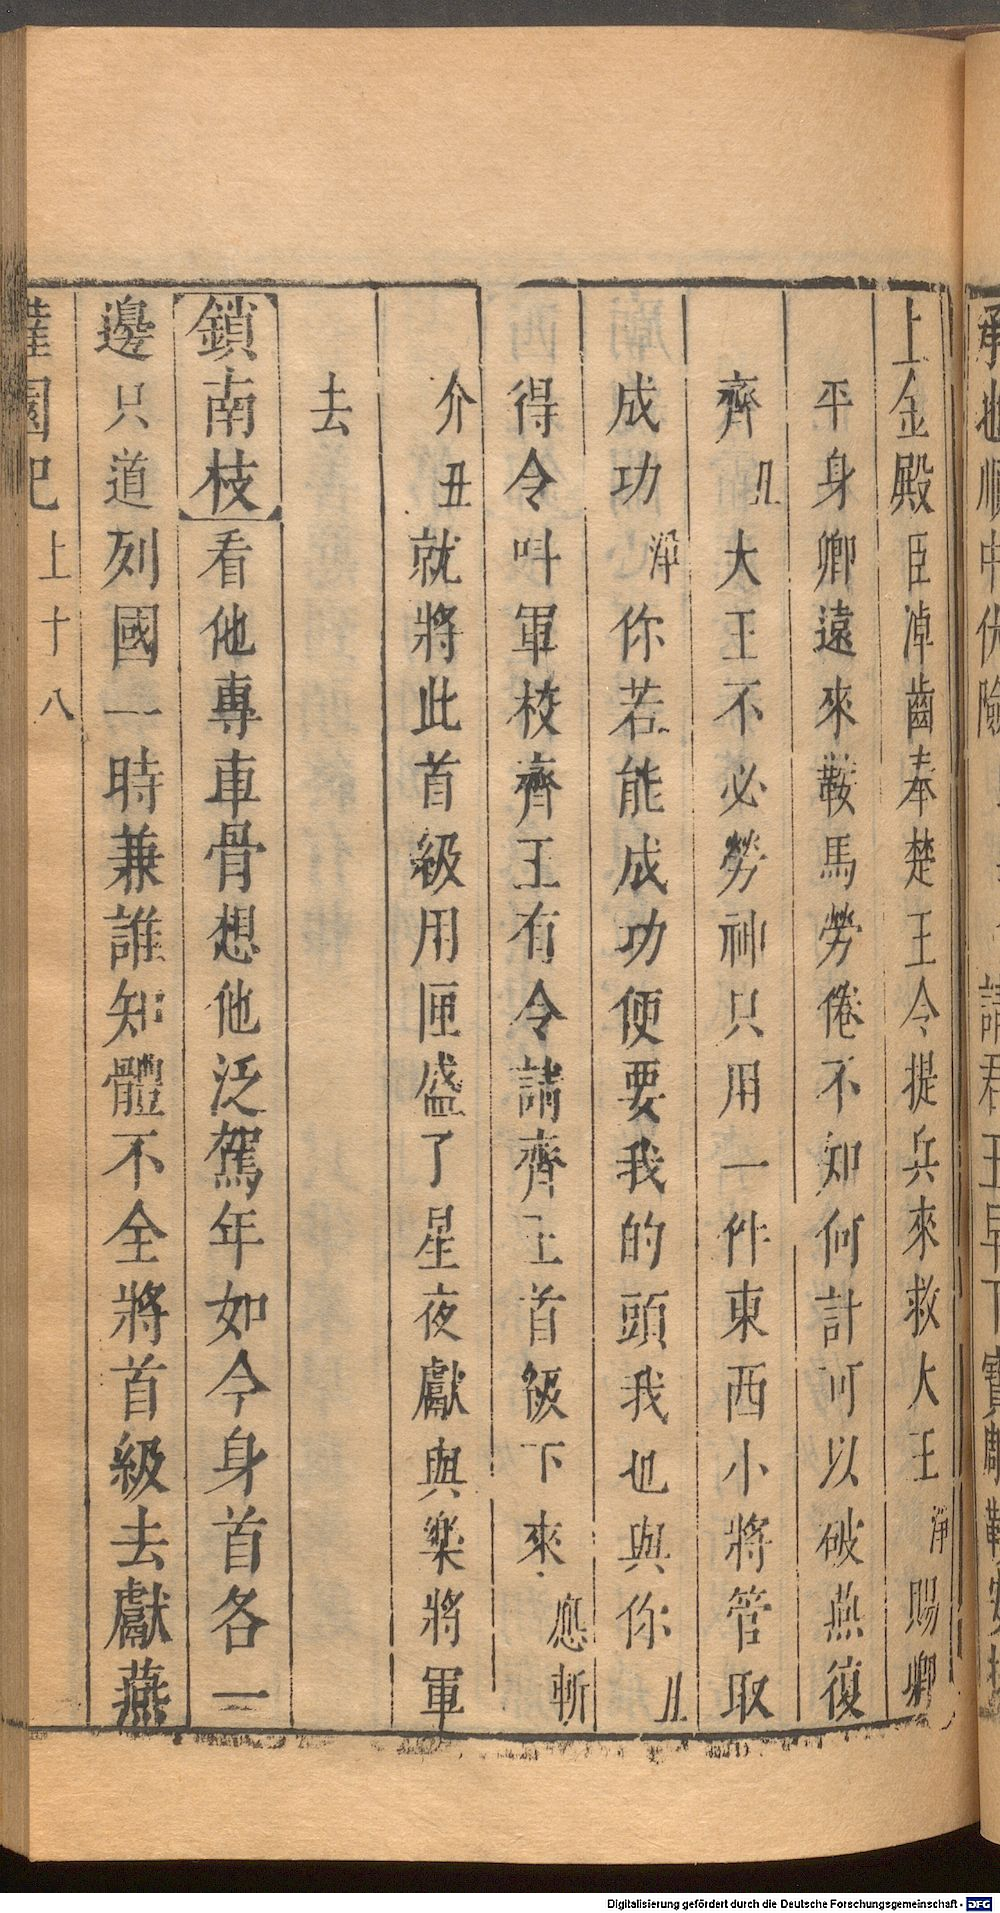 上金殿臣淖齒奉楚王令提兵來救大王淨賜卿
平身卿遠來鞍馬勞倦不知何計可以破燕復
齊丑大王不必勞神只用一件東西小將管取
成功淨你若能成功便要我的頭我也與你丑
得令叫軍校齊王有令請齊王首級下來應斬
介丑就將此首級用匣盛了星夜獻與樂將軍
去
【鎖南枝】看他專車骨想他泛駕年如今身首各一
邊只道列國一時兼誰知體不全將首級去獻燕
園記 上 十八
Digitalisierung gefördert durch die Deutsche Forschungsgemeinschaft - DFG